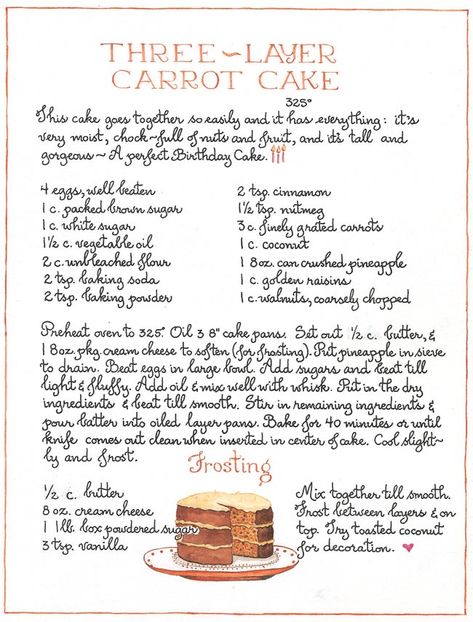 THREE~LAYER
CARROT CAKE
325°
This cake goes together so easily and it has everything: it's
very moist, chock-full of nuts and fruit, and it's tall and
gorgeous ~ A perfect Birthday Cake.
4 eggs, well beaten
1 c. packed brown sugar
1 c. white sugar
1½ c. vegetable oil
2 c. unbleached flour
2 tsp. baking soda
2 tsp. baking powder
2 tsp. cinnamon
1½ tsp. nutmeg
3 c. finely grated carrots
1 c. coconut
1 8oz. can crushed pineapple
1 c. golden raisins
1 c. walnuts, coarsely chopped
Preheat oven to 325°. Oil 3 8" cake pans. Set out ½ c. butter, &
1 8oz. pkg cream cheese to soften (for frosting). Put pineapple in sieve
to drain. Beat eggs in large bowl. Add sugars and beat till
light & fluffy. Add oil & mix well with whisk. Put in the dry
ingredients & beat till smooth. Stir in remaining ingredients &
pour batter into oiled layer pans. Bake for 40 minutes or until
knife comes out clean when inserted in center of cake. Cool slight-
ly and frost.
Frosting
½ c. butter
8 oz. cream cheese
1 1lb. box powdered sugar
3 tsp. vanilla
Mix together till smooth.
Frost between layers & on
top. Try toasted coconut
for decoration.